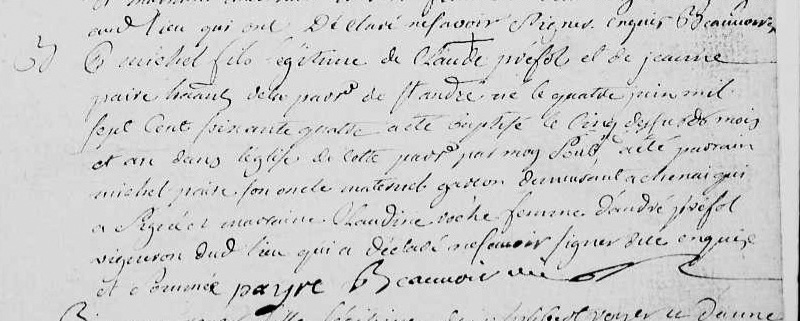 aud. lieu qui ont déclaré ne savoir signer enquis Beauvoir
michel fils légitime de Claude préfol et de jeanne
paire habants de la parr.e de st andré né le quatre juin mil
sept Cent soixante quatre a été baptisé le Cinq desfusds mois
et an dans l'église de cette parr.e par moy Soub.é a été parrain
michel paire son oncle maternel garcon demeurant a chenai qui
a Signé et marraine Claudine roche femme d'andré préfol
vigneron dud. lieu qui a déclaré ne savoir signer de ce enquise
et Sommée payre Beauvoir